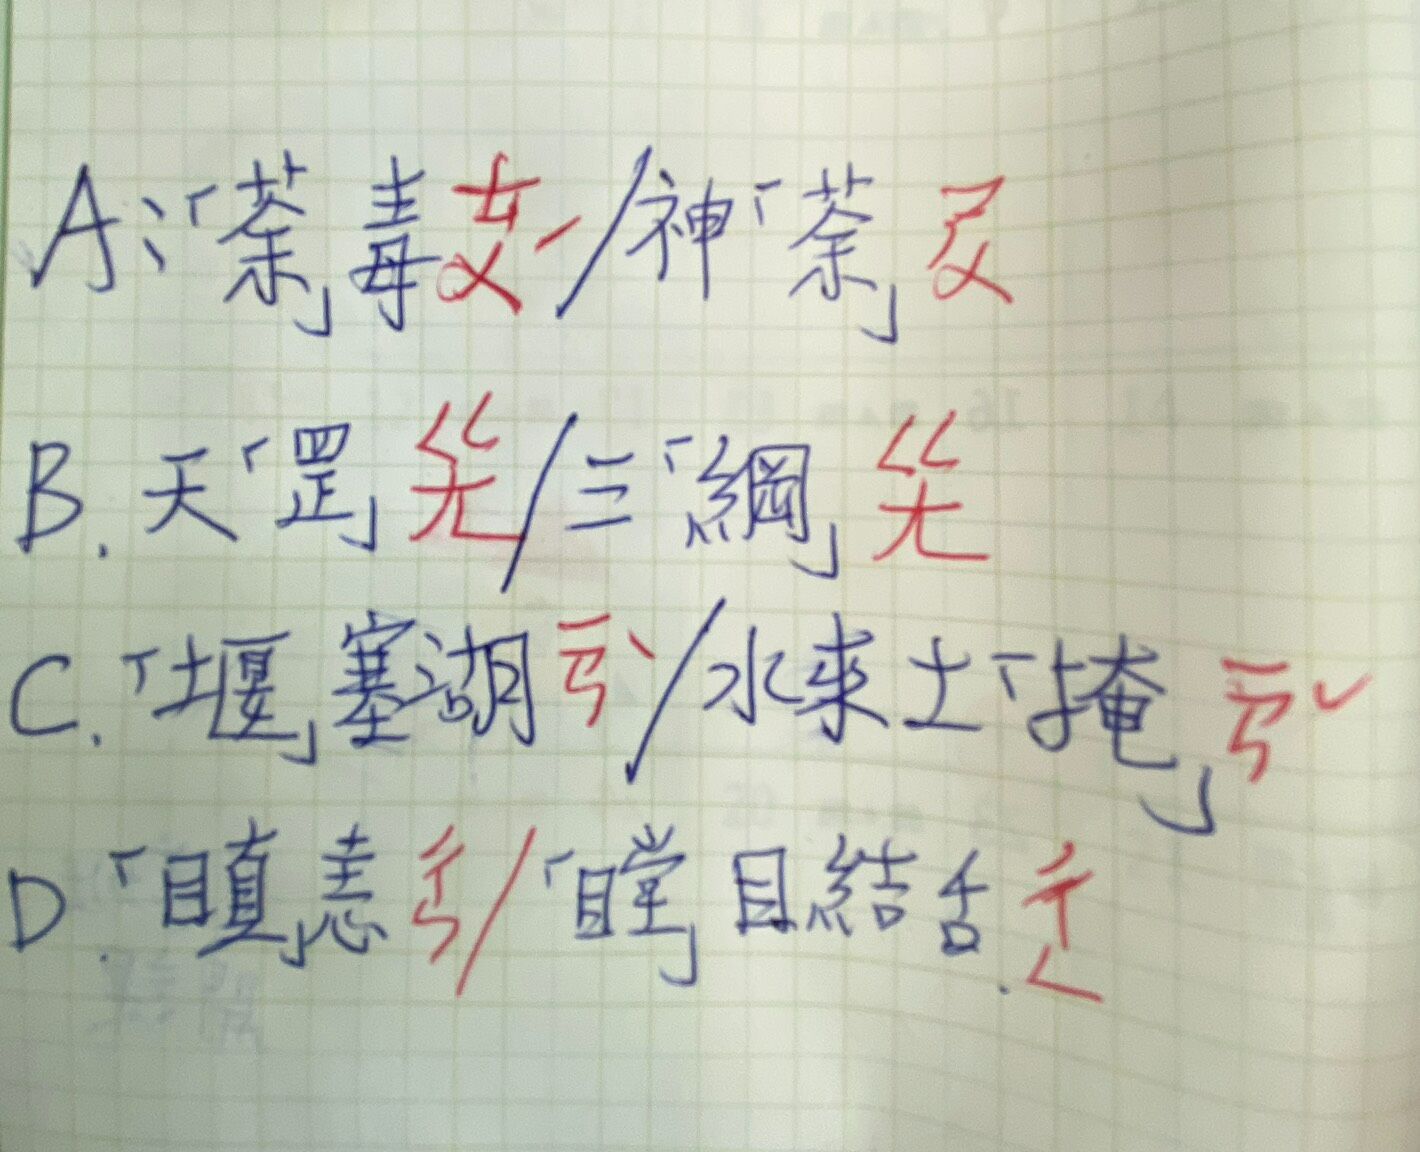 A:「荼」毒ㄊㄨˊ/神「荼」ㄕㄨ
B.天「罡」ㄍㄤ/三「綱」ㄍㄤ
C.「堰」塞湖ㄧㄢˋ/水來土「掩」ㄧㄢˇ
D.「瞋」恚ㄔㄣ/「瞠」目結舌ㄔㄥ